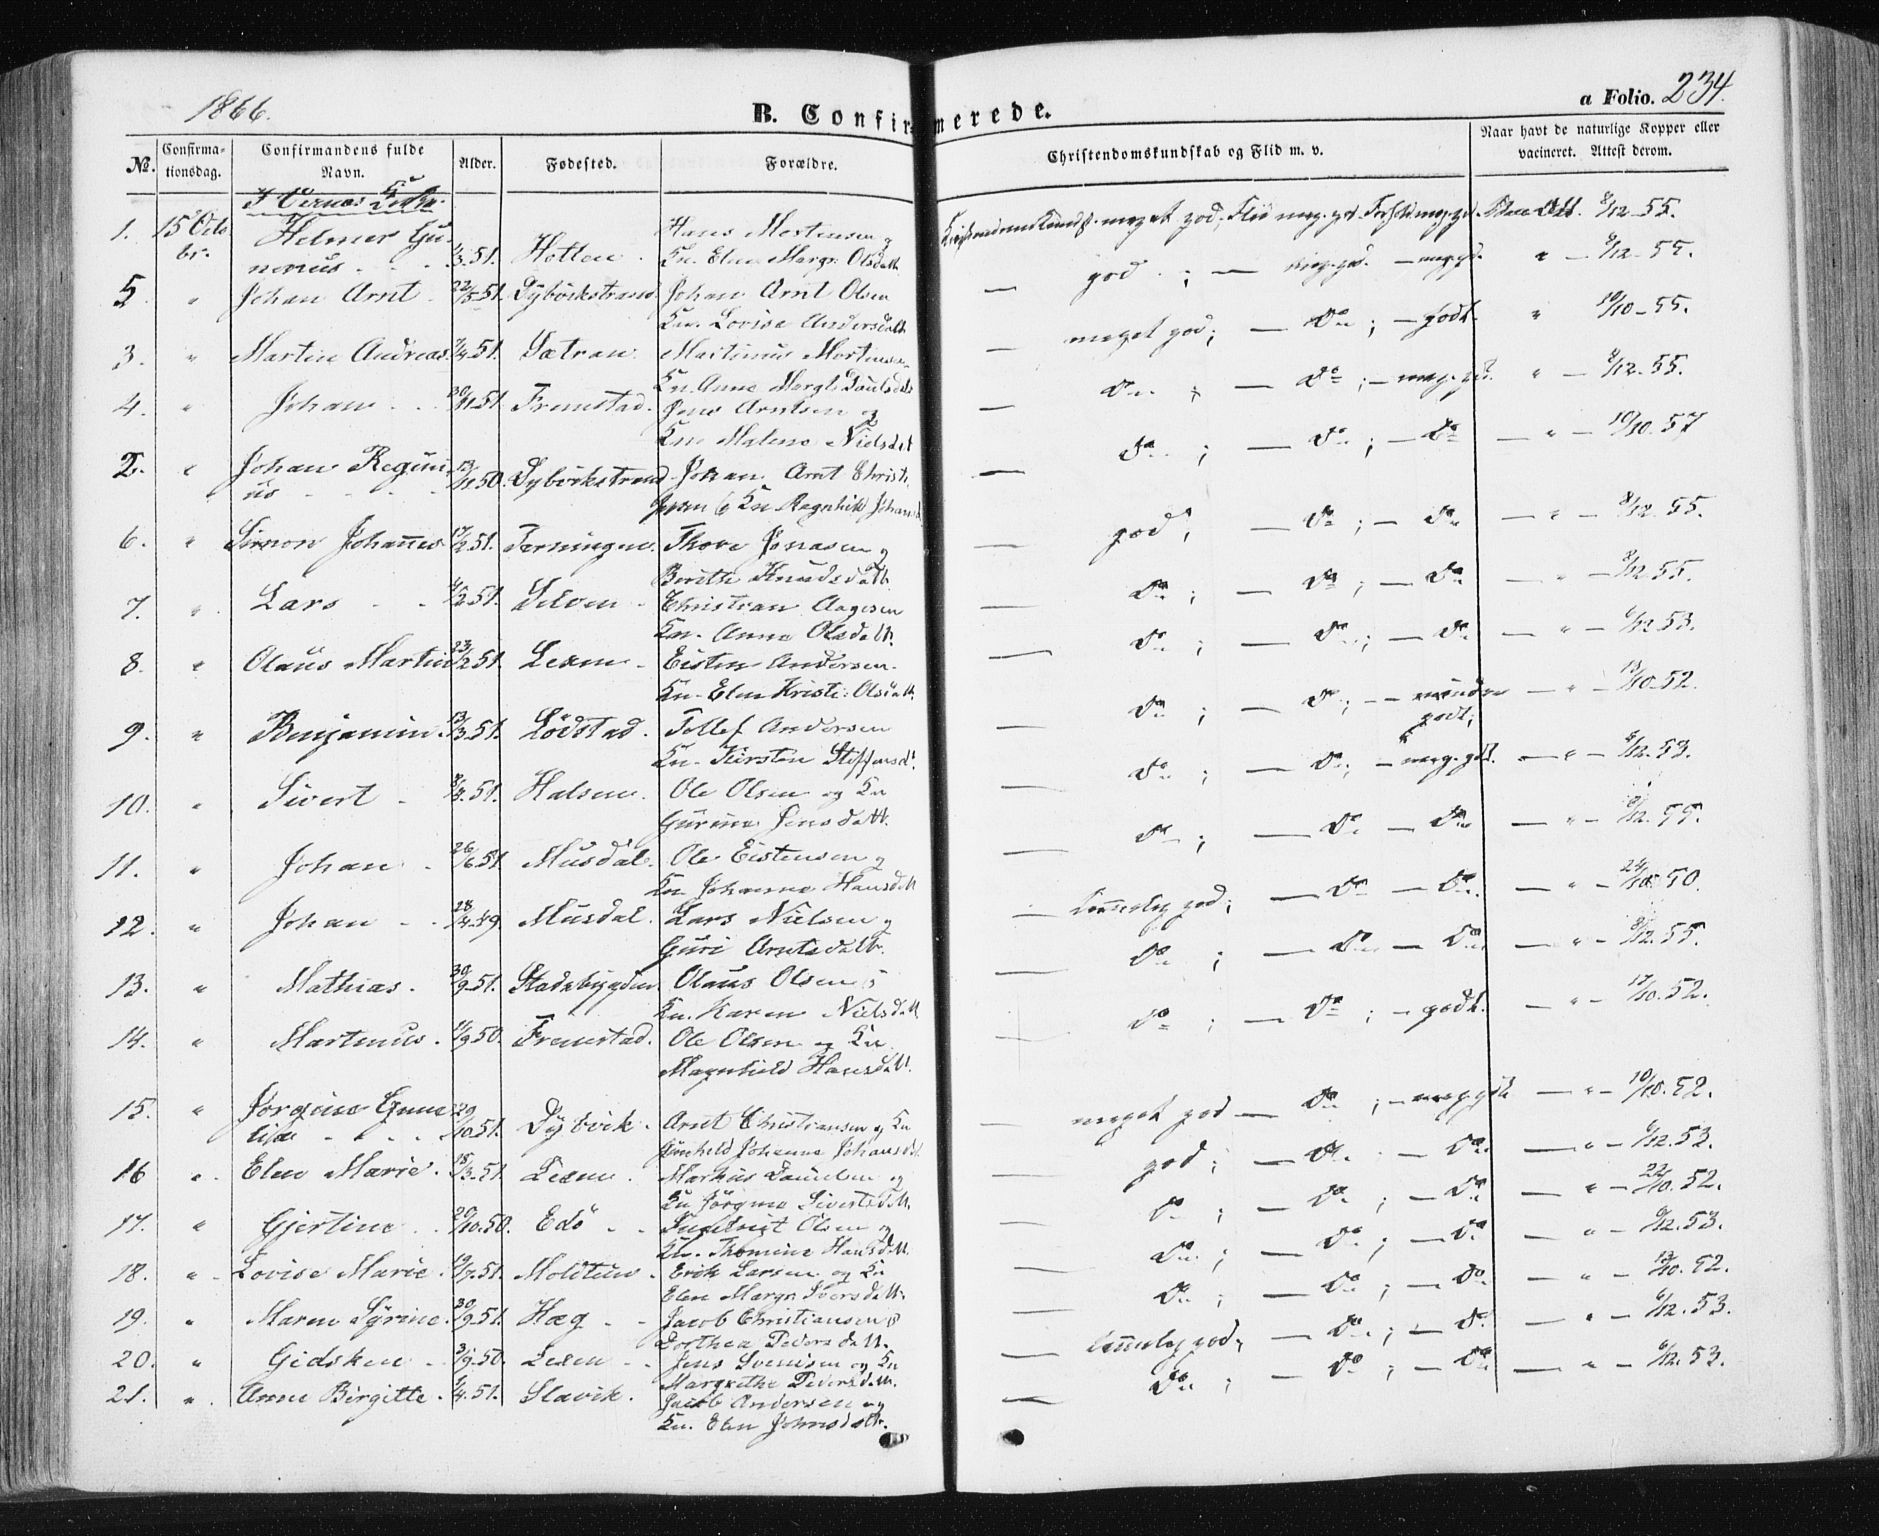 1866.
B. Confirmerede.
a Folio. 234.
No. Confirmationsdag. Confirmandens fulde Navn. Alder. Fødested. Forældre. Christendomskundskab og Flid m. v. Naar havt de naturlige Kopper eller vacineret. Attest derom.
1. 15 Octobr. Helmer Gunerius 51. Hollen. Hans Mortensen og
Kn. Elen Margr. Olsdatt. meget god; 8/12 55.
5. " Johan Arnt 22/5 51. Dybvikstrand. Johan Arnt Olsen
Kn. Lovise Andersdatt. god ; — " — 8/12 55.
3. " Martin Andreas. 51. Sætran. Martinus Mortensen
Kn. Anne Margt. Paulsdatt meget god; — Do ; — godt. " 10/10 55.
4. " Johan 51. Fremstad. Jens Arntsen og
Kn. Malene Nielsdat Do ; — Do ; — meg. god. " — 8/12. 55.
2. " Johan Reginius 50. Dybvikstrand. Johan Arnt Christiansen & Kn Ragnhild Johansd. Do ; — Do ; — Do — " — 10/10. 57
6. " Simon Johannes 17/2 51. Terningen. Thore Jonasen og
Berithe Knudsdatt. god; — Do ; — Do — " — 8/12. 55.
7. " Lars 4/2 51. Selven. Christian Aagesen
Kn. Anne Olsdatt. Do ; — Do ; — Do — " — 8/12 55.
8. " Olaus Martin 23/2 51. Lexen. Eisten Andersen.
Kn. Elen Kristi: Olsdatt. Do ; — Do ; — Do — " — 6/12 53.
9. " Benjamin. 13/3 51. Lödstad. Tollef Andersen
Kn. Kirsten Steffensdt. Do ; — Do ; — mindre godt; — " — 13/10. 52.
10. " Sivert 51. Halsen. Ole Olsen og Kn
Gurine Jensdatt. Do ; — Do ; — meg. godt. — " — 6/12. 53.
11. " Johan 26/6 51. Musdal. Ole Eistensen og
Kn Johanna Hansdatt Do ; — Do — Do — " — 8/12. 55.
12. " Johan 28/4 49. Musdal. Lars Nielsen og
Guri Arntsdatt. temelig god; — Do — Do — " — 24/10. 50.
13. " Mathias. 30/9 51. Stadsbygden Olaus Olsen &
Kn. Karen Nielsdatt Do ; — Do — Do — " — 8/12. 55.
14. " Martinus. 11/9 50. Fremstad. Ole Olsen og Kn
Magnhild Hansdatt. Do ; — Do ; — godt. — " — 17/10. 52.
15. " Jorgine Gunnilde 29/10 51. Dybvik. Arnt Christiansen og Kn
Gunhild Johanna Johansdt. meget god — Do ; — meg. godt — " — 10/10. 52.
16 " Elen Marie. 18/3 51. Lexen. Markus Danielsen og
Kn Jörgine Sivertsdatt. god ; — Do — Do — " — 6/12. 53.
17. " Gjertine 29/10. 50. Edö Ingebrigt Olsen og
Kn. Thomine Hansdatt. Do ; — Do ; — Do — " — 22/10. 52.
18. " Lovise Marie. 51. Moldtun. Erik Larsen og Kn
Elen Margr. Iversdatt. Do ; — Do ; — Do " — 6/12. 53.
19. " Maren Syrine. 30/9. 51. Hæg Jacob Christiansen &
Dorthea Pedersdatt. Do ; — Do ; — Do — " — 13/10. 52.
20. " Gidsken 50. Lexen Jens Svendsen og Kn
Margrethe Pedersdatt. temelig god, — Do ; — Do — " — 6/12. 53.
21. " Anne Birgitte. 1/4. 51. Slavik. Jacob Andersen og
Kn. Elen Johnsdatt. Do ; — Do ; — Do — " — 6/12. 53.